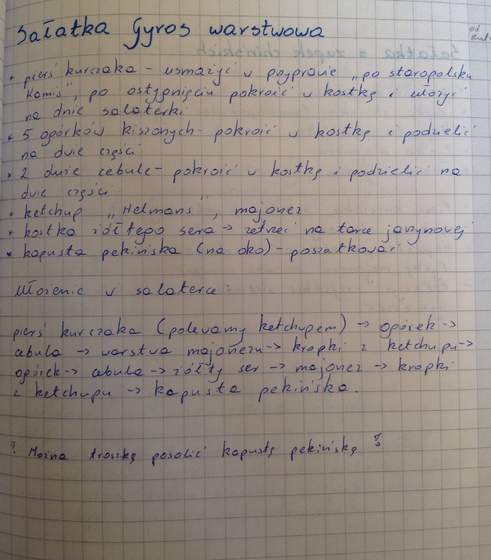 Sałatka Gyros warstwowa
• pierś kurczaka - usmażyć w przyprawie „po staropolsku
Kamis" po ostygnięciu pokroić w kostkę i włożyć
na dnie salaterki
• 5 ogórków kiszonych - pokroić w kostkę i podzielić
na dwie części
• 2 duże cebule - pokroić w kostkę i podzielić na
dwie części
• ketchup „Helmans", majonez
• kostka żółtego sera → zetrzeć na tarce jarzynowej
• kapusta pekińska (na oko) - poszatkować
Ułożenie w salaterce:
pierś kurczaka (polewamy ketchupem) → ogórek →
cebula → warstwa majonezu → kropki z ketchupu →
ogórek → cebula → żółty ser → majonez → kropki
z ketchupu → kapusta pekińska.
! Można troszkę posolić kapustę pekińską !